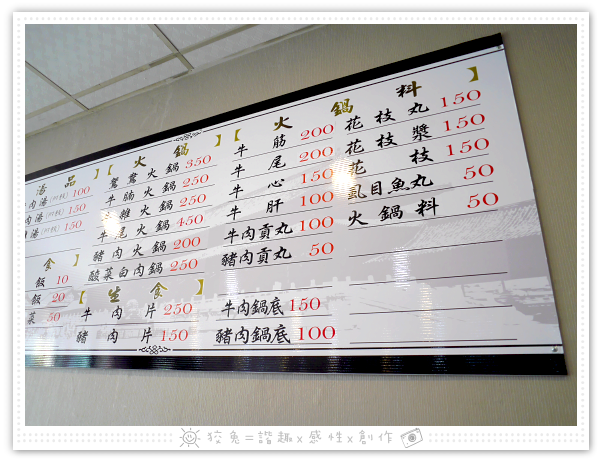 湯品】
肉湯(附飯)100
肉湯(附飯)150
湯(附飯)150
食】
飯 10
飯 20
菜 50
【火鍋】
鴛鴦火鍋 350
牛腩火鍋 250
牛雜火鍋 250
牛尾火鍋 450
豬肉火鍋 200
酸菜白肉鍋 250
【生食】
牛肉片 250
豬肉片 150
【火鍋料】
牛筋 200
牛尾 200
牛心 150
牛肝 100
牛肉貢丸 100
豬肉貢丸 50
牛肉鍋底 150
豬肉鍋底 100
花枝丸 150
花枝漿 150
花枝 150
虱目魚丸 50
火鍋料 50
狡兔=諧趣x感性x創作